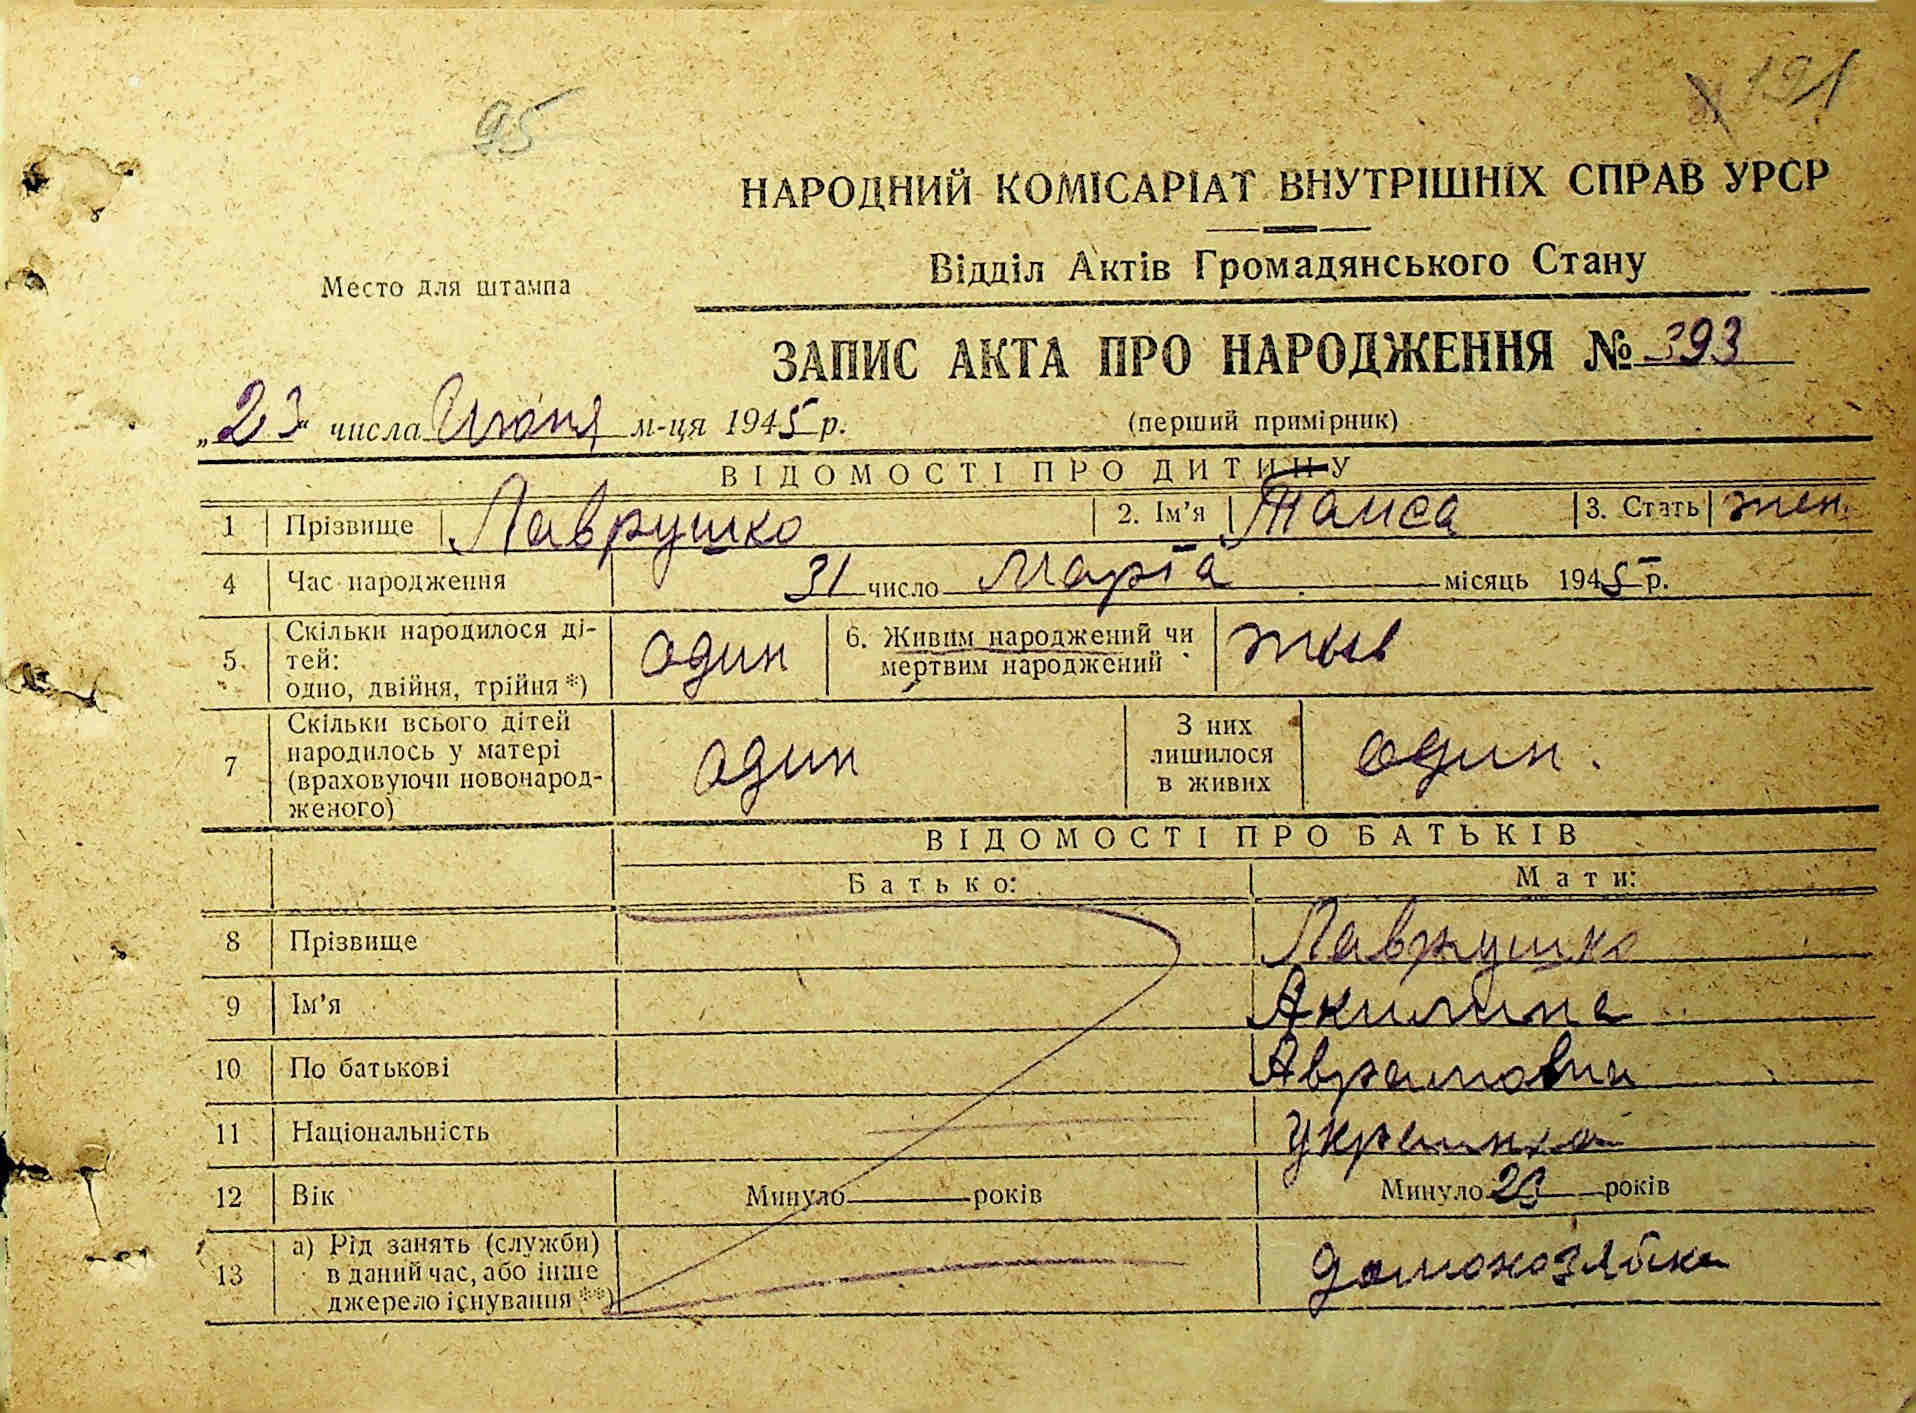 95
191
НАРОДНИЙ КОМІСАРІАТ ВНУТРІШНІХ СПРАВ УРСР
Відділ Актів Громадянського Стану
Место для штампа
ЗАПИС АКТА ПРО НАРОДЖЕННЯ № 393
„23“ числа Июня м-ця 1945 р.
(перший примірник)
ВІДОМОСТІ ПРО ДИТИНУ
1 Прізвище Лаврушко 2. Ім'я Таиса 3. Стать жен.
4 Час народження 31 число Марта місяць 1945 р.
5. Скільки народилося ді-
тей:
одно, двійня, трійня *) один 6. Живим народжений чи
мертвим народжений жыв
7 Скільки всього дітей
народилось у матері
(враховуючи новонарод-
женого) один З них
лишилося
в живих один.
ВІДОМОСТІ ПРО БАТЬКІВ
Батько: Мати:
8 Прізвище Лаврушко
9 Ім'я Акилина
10 По батькові Аврамовна
11 Національність украинка
12 Вік Минуло років Минуло 20 років
13 а) Рід занять (служби)
в даний час, або інше
джерело існування **) домохозяйка